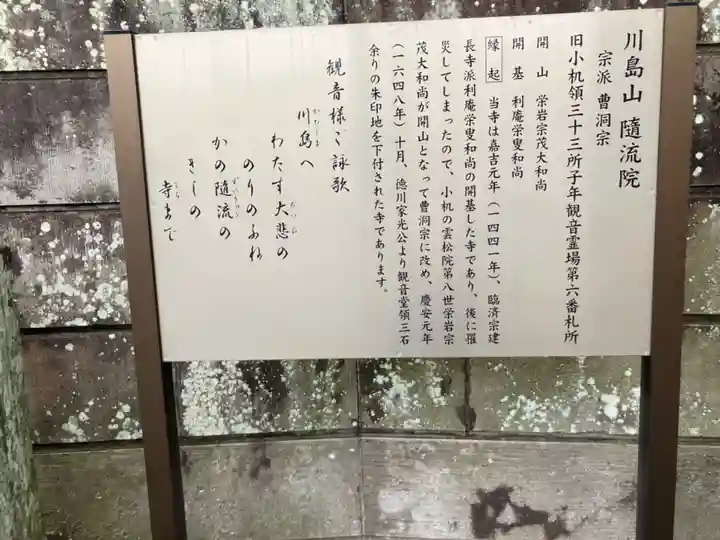 川島山 隨流院
宗派 曹洞宗
旧小机領三十三所子年観音霊場第六番札所
開山 栄岩宗茂大和尚
開基 利庵栄叟和尚
縁起 当寺は嘉吉元年(一四四一年)、臨済宗建
長寺派利庵栄叟和尚の開基した寺であり、後に罹
災してしまったので、小机の雲松院第八世栄岩宗
茂大和尚が開山となって曹洞宗に改め、慶安元年
(一六四八年)十月、徳川家光公より観音堂領三石
余りの朱印地を下付された寺であります。
観音様ご詠歌
川島へ
わたす大悲の
のりのふね
かの隨流の
きしの
寺まで